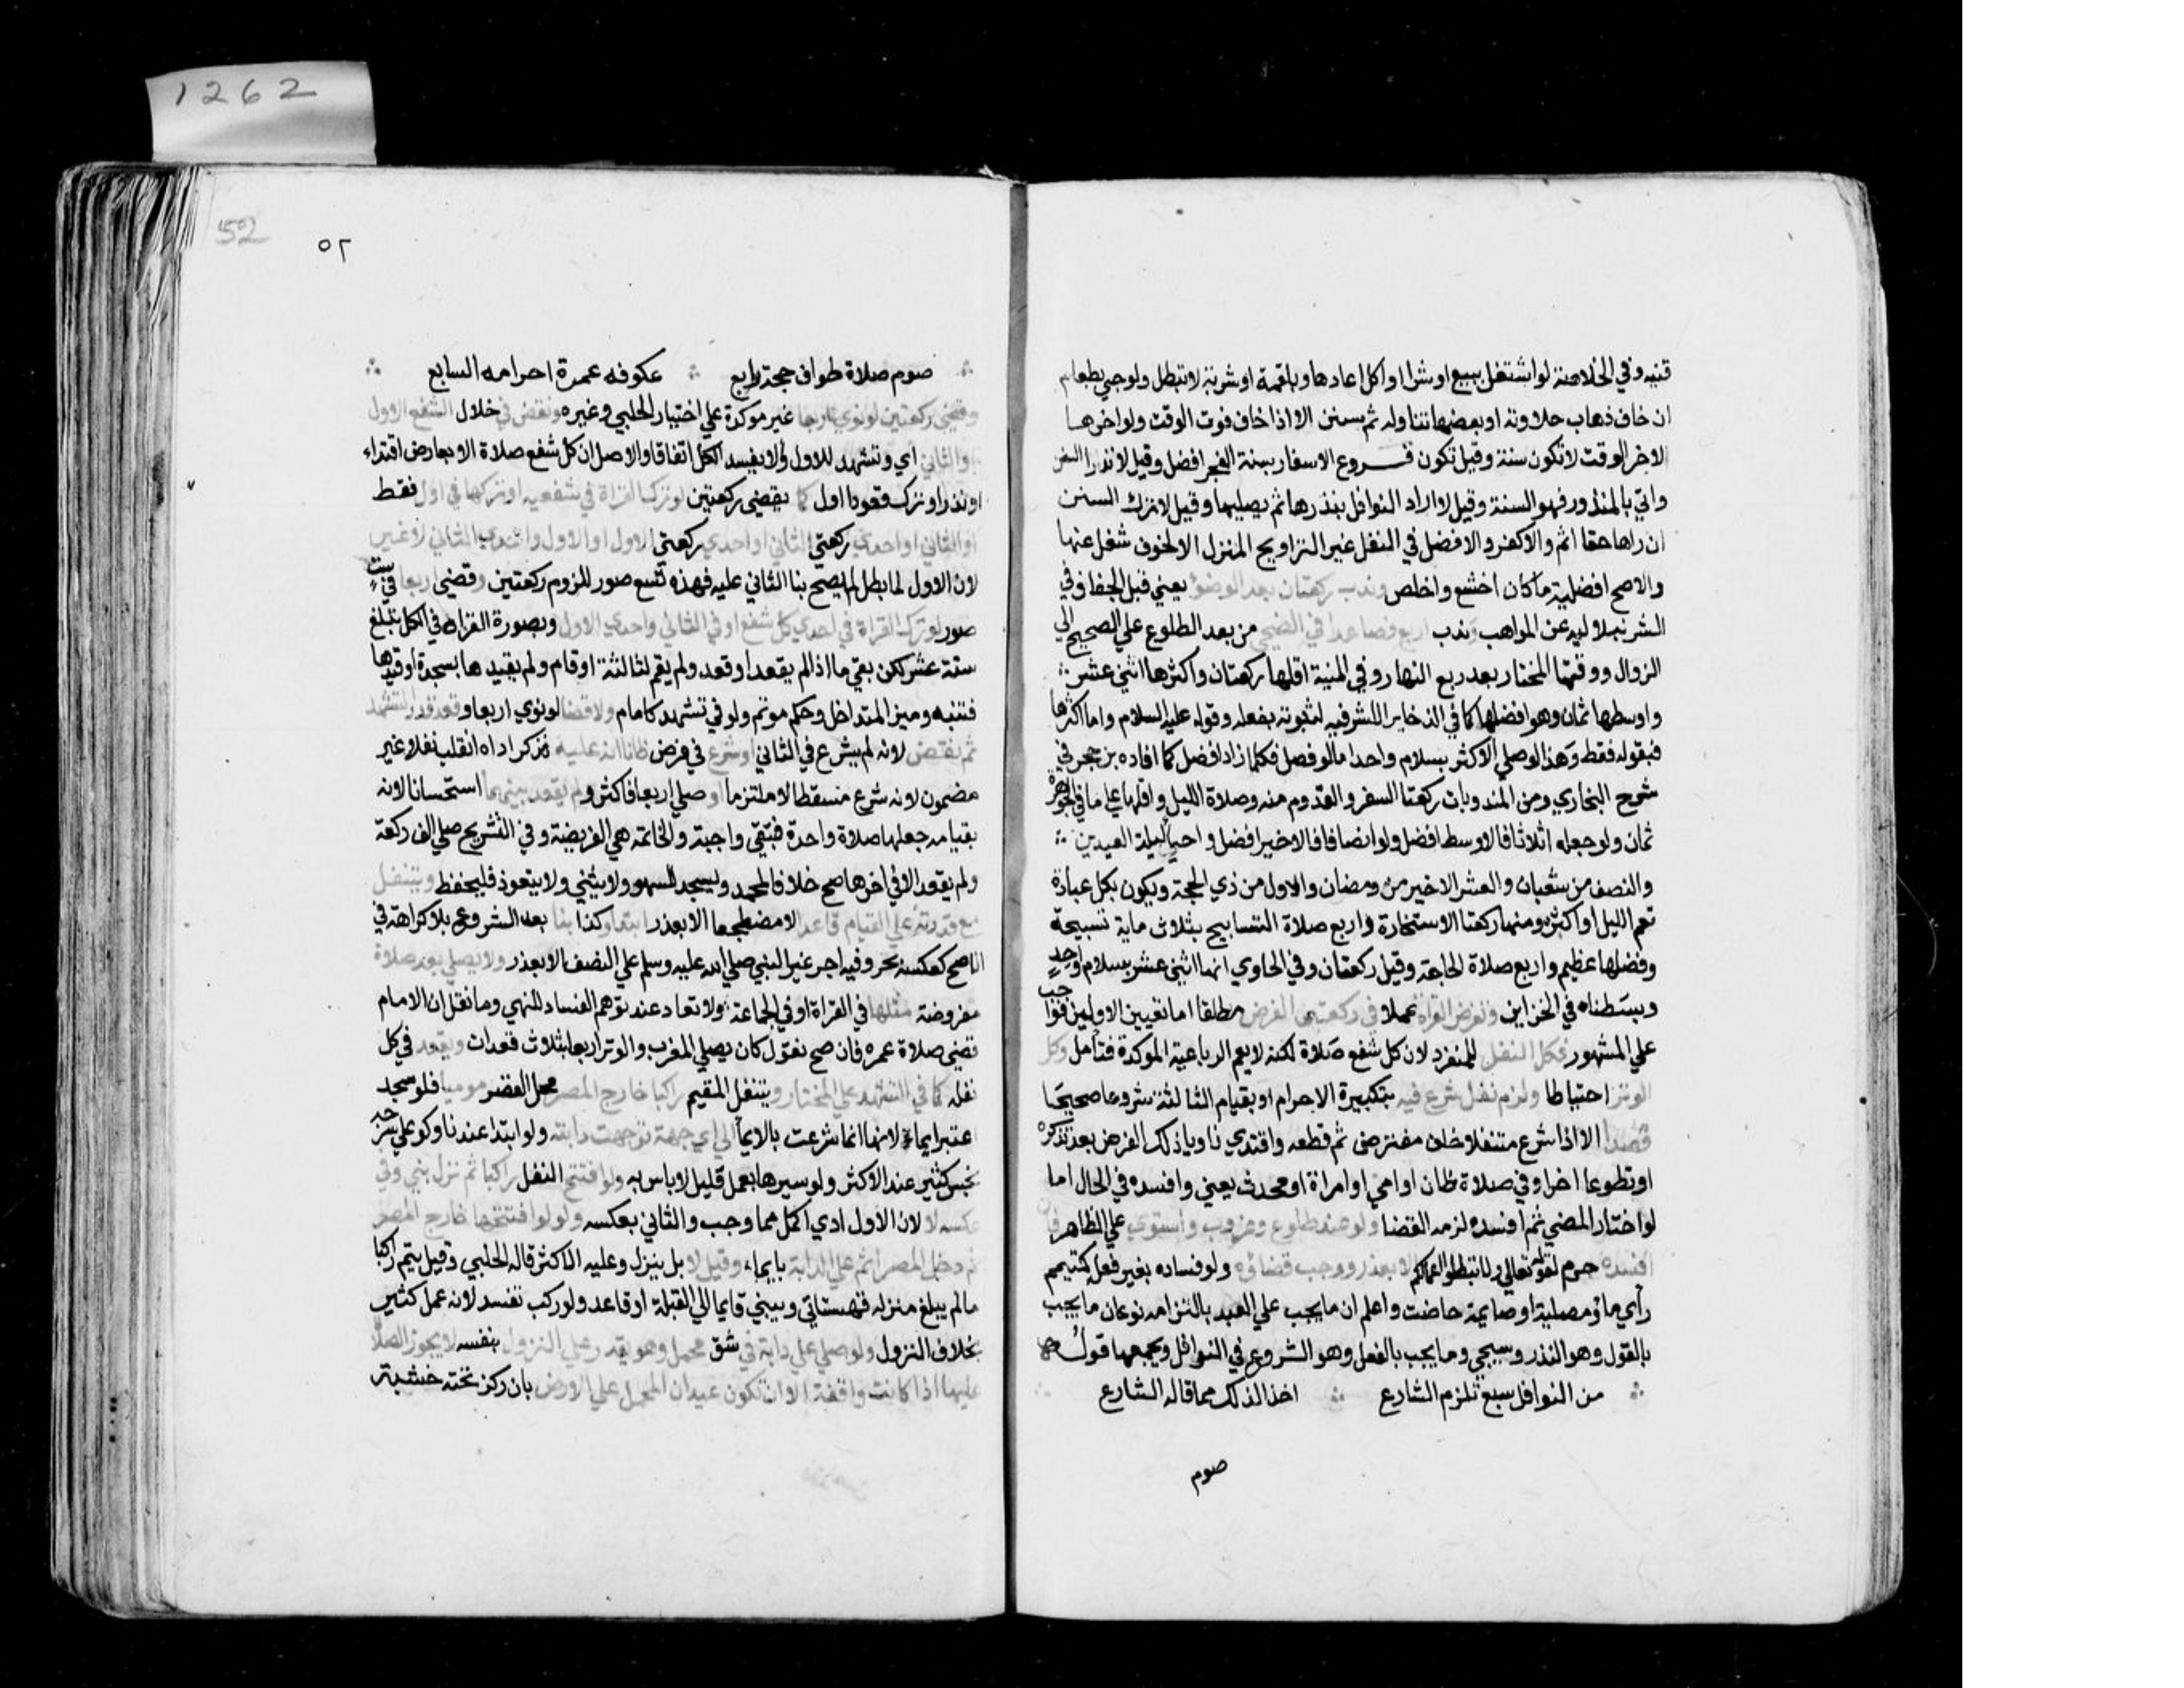 1262
قنيه وفي الخلاصة لو اشتغل ببيع او شرا او اكل اعادها وبلقمة او شربة لا تبطل ولو جي بطعام
ان خاف ذهاب حلاوته او بعضها تناوله ثم سنن الا اذا خاف فوت الوقت ولو اخرها
لاخر الوقت لا تكون سنة وقيل تكون فروع الاسفار بسنة الفجر افضل وقيل لا نذر السنن
واتي بالمنذور فهو السنة وقيل لا اراد النوافل ينذرها ثم يصليها وقيل لا ترك السنن
ان راها حقا اثم والا كفر والافضل في النفل غير التراويح المنزل الا لخوف شغل عنها
والاصح افضلية ما كان اخشع واخلص وندب ركعتان بعد الوضؤ يعني قبل الجفاف وفي
الشرنبلاليه عن المواهب وندب اربع فصاعدا في الضحي من بعد الطلوع علي الصحيح الي
الزوال ووقتها المختار بعد ربع النهار وفي المنية اقلها ركعتان واكثرها اثني عشر
واوسطها ثمان وهو افضلها كما في الذخاير الاشرفيه لثبوته بفعله وقوله عليه السلام واما اكثرها
فبقوله فقط وهذا لو صلي الاكثر بسلام واحد اما لو فصل فكلما زاد افضل كما افاده بن حجر في
شرح البخاري ومن المندوبات ركعتا السفر والقدوم منه وصلاة الليل واقلها علي ما في الجوهرة
ثمان ولو جعله اثلاثا فالاوسط افضل ولو انصافا فالاخير افضل واحيا ليلة العيدين
والنصف من شعبان والعشر الاخير من رمضان والاول من ذي الحجة ويكون بكل عبادة
تعم الليل او اكثره ومنها ركعتا الاستخارة واربع صلاة التسابيح بثلاث ماية تسبيحة
وفضلها عظيم واربع صلاة الحاجة وقيل ركعتان وفي الحاوي انها اثني عشر بسلام واحد
وبسطناه في الخزاين وتفرض القراة عملا في ركعتي الفرض مطلقا اما تعيين الاوليين فواجب
علي المشهور وكل النفل للمنفرد لان كل شفع صلاة لكنه لا يعم الرباعية الموكدة فتامل وكل
الوتر احتياطا ولزم نفل شرع فيه بتكبيرة الاحرام او بقيام الثالثة شروعا صحيحا
قصدا الا اذا شرع متنفلا خلف مفترض ثم قطعه واقتدي ناويا ذلك الفرض بعد تذكره
او تطوعا اخر او في صلاة ظان او امي او امراة او محدث يعني وافسده في الحال اما
لو اختار المضي ثم افسده لزمه القضا ولو عند طلوع وغروب واستوي علي الظاهر فان
افسده حرم لقوله تعالي ولا تبطلوا اعمالكم الا بعذر ووجب قضاؤه ولو فساده بغير فعله كمتيمم
راي ماؤ مصلية او صايمة حاضت واعلم ان ما يجب علي العبد بالتزامه نوعان ما يجب
بالقول وهو النذر وسيجي وما يجب بالفعل وهو الشروع في النوافل ويجمعها قوله
من النوافل سبع تلزم الشارع اخذا لذلك مما قاله الشارع
صوم
52
٥٢
صوم صلاة طواف حجة رابع عكوفه عمرة احرامه السابع
وقضي ركعتين لو نوي اربعا غير موكدة علي اختيار الحلبي وغيره ونقض في خلال الشفع الاول
او الثاني اي وتشهد للاول والا يفسد الكل اتفاقا والاصل ان كل شفع صلاة الا بعارض اقتداء
او نذر او ترك قعود اول كما يقضي ركعتين لو ترك القراة في شفعيه او تركها في اول فقط
او الثاني او احدي ركعتي الثاني او احدي ركعتي الاول او الاول واحدي الثاني لا غير
لان الاول لما بطل لم يصح بنا الثاني عليه فهذه تسع صور للزوم ركعتين وقضي اربعا في ست
صور لو ترك القراة في احدي كل شفع او في الثاني واحدي الاول وبصورة القراة في الكل تبلغ
ستة عشر لكن بقي ما اذا لم يقعد او قعد ولم يقم لثالثة او قام ولم يقيدها بسجدة او قيدها
فتنبه وميز المتداخل وحكم موتم ولو في تشهد كامام ولا قضا لو نوي اربعا وقعد قدر التشهد
ثم نقض لانه لم يشرع في الثاني او شرع في فرض ظانا انه عليه فذكر اداه انقلب نفلا غير
مضمون لانه شرع مسقطا لا ملتزما او صلي اربعا فاكثر ولم يقعد بينهما استحسانا لانه
بقيامه جعلها صلاة واحدة فتبقي واجبة والخاتمه هي الفريضة وفي التشريح صلي الف ركعة
ولم يقعد الا في اخرها صح خلافا لمحمد ويسجد للسهو ولا يثني ولا يتعوذ فليحفظ ويتنفل
مع قدرته علي القيام قاعدا لا مضطجعا الا بعذر ابتدا وكذا بنا بعد الشروع بلا كراهة في
الاصح كعكسه بحر وفيه اجر غير النبي صلي الله عليه وسلم علي النصف الا بعذر ولا يصلي بعد صلاة
مفروضة مثلها في القراة او في الجماعة ولا تعاد عند توهم الفساد للنهي وما نقل ان الامام
قضي صلاة عمره فان صح نقول كان يصلي المغرب والوتر اربعا بثلاث قعدات ويقعد في كل
نفله كما في التشهد علي المختار ويتنفل المقيم راكبا خارج المصر محل القصر موميا فلو سجد
اعتبر ايماء لانها انما شرعت بالايما الي اي جهة توجهت دابته ولو ابتدا عندنا ولو علي سرجه
نجس كثير عند الاكثر ولو سيرها بعمل قليل لا باس به ولو افتتح النفل راكبا ثم نزل بني وفي
عكسه لا لان الاول ادي اكمل مما وجب والثاني بعكسه ولو لو افتتحها خارج المصر
ثم دخل المصر اتم علي الدابة بايماء وقيل لا بل ينزل وعليه الاكثر قاله الحلبي وقيل يتم راكبا
ما لم يبلغ منزله قهستاني ويبني قايما الي القبلة او قاعد ولو ركب تفسد لانه عمل كثير
بخلاف النزول ولو صلي علي دابة في شق محمل وهو يقدر علي النزول بنفسه لا يجوز الصلا
عليها اذا كانت واقفة الا ان تكون عيدان المحمل علي الارض بان ركز تحته خشبة